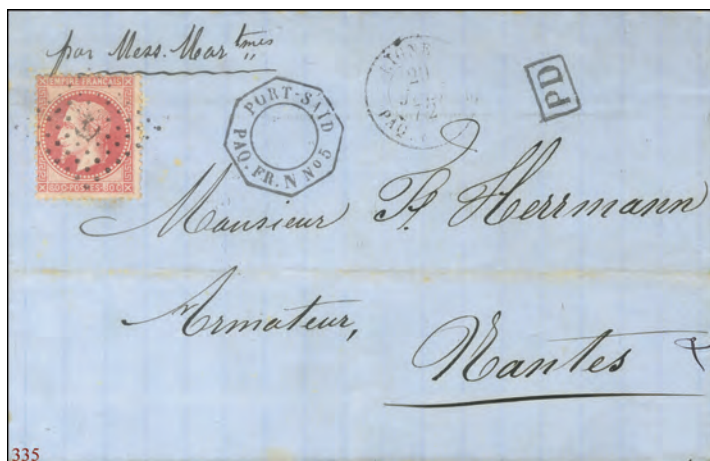 par Mess. Martimes
EMPIRE FRANÇAIS
80 C POSTES 80 C
PORT-SAID
PAQ. FR. N No 5
LIGNE
PAQ.
PD
Monsieur F. Herrmann
Armateur,
Nantes
335